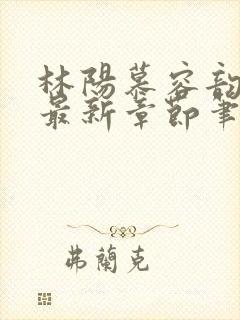 林陽慕容韵
最新章節筆
弗蘭克